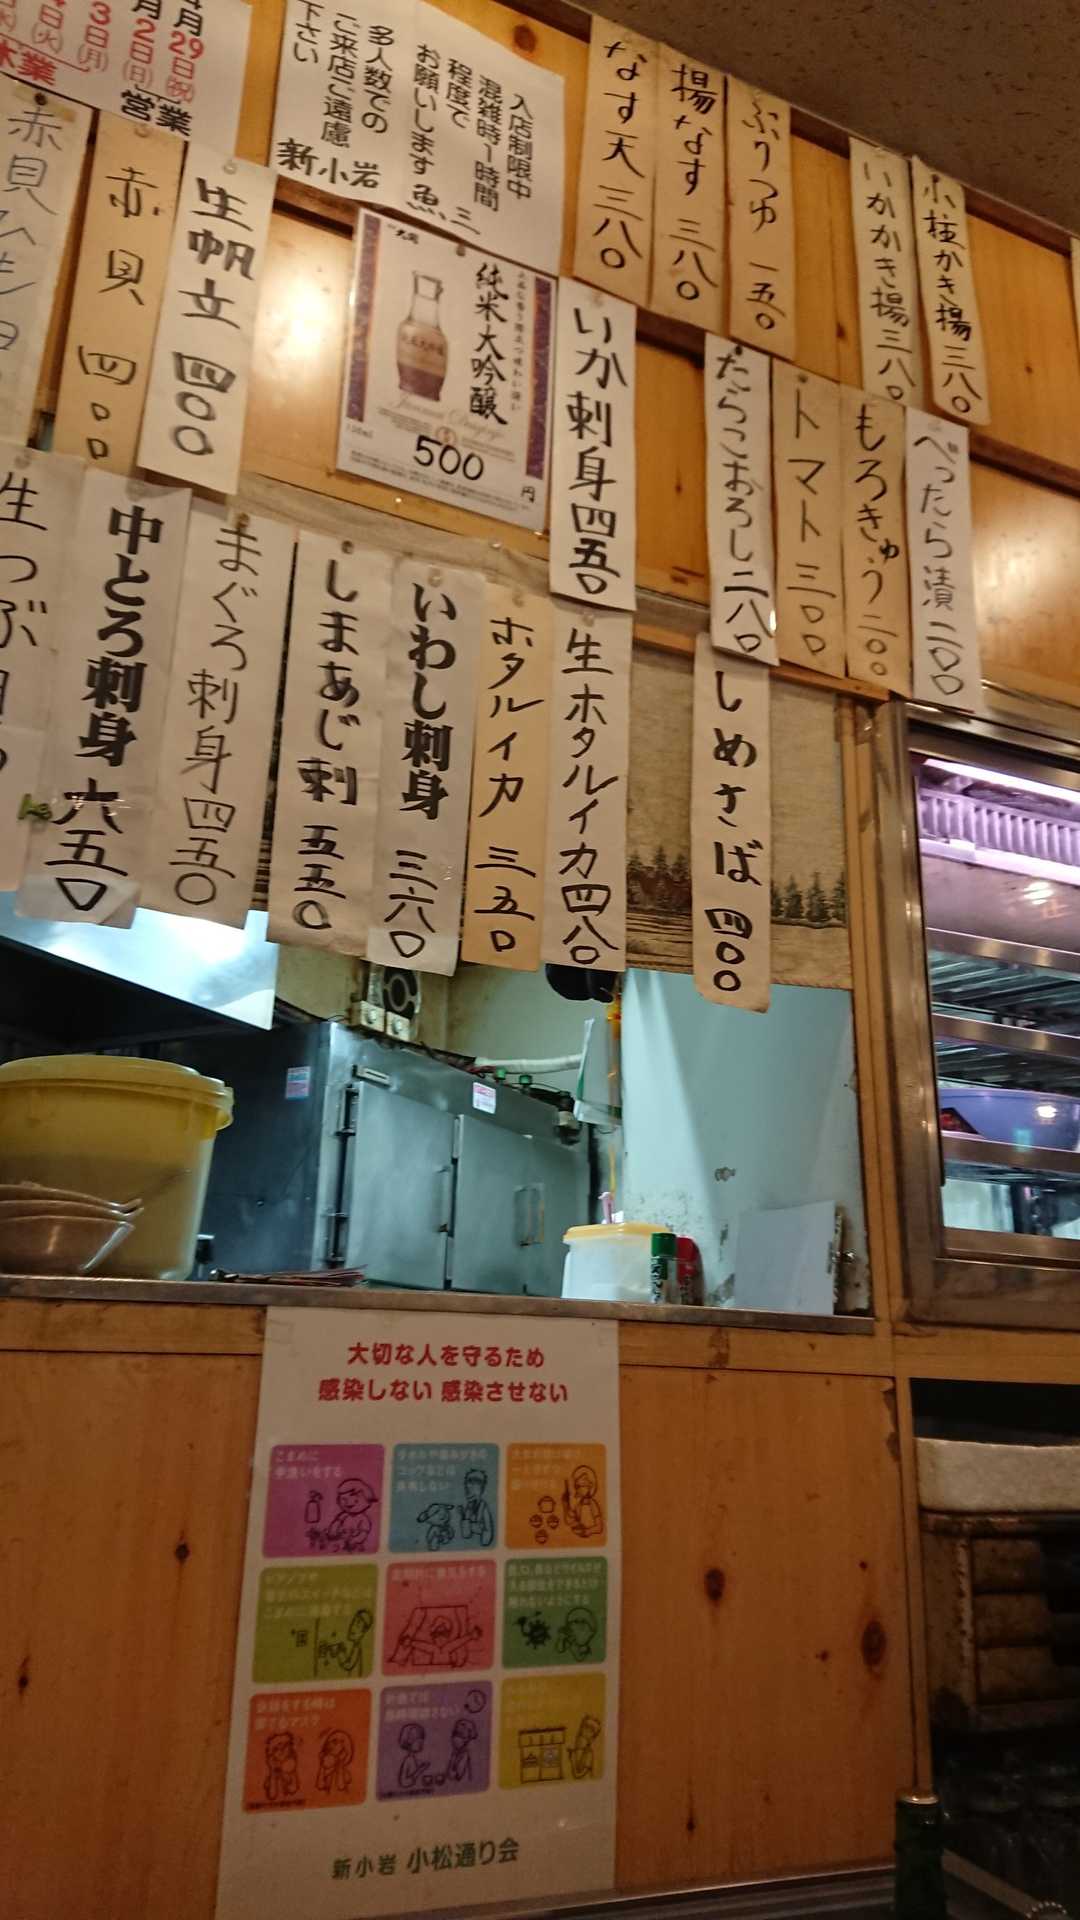 4月29日(祝)
月2日(日)
3日(月)
営業
休業
入店制限中
混雑時1時間
程度で
お願いします
多人数での
ご来店ご遠慮
下さい
魚三
新小岩
なす天 三八〇
揚なす 三八〇
ぶりつゆ 一五〇
いかかき揚 三八〇
小柱かき揚 三八〇
赤貝 四〇〇
生帆立 四〇〇
純米大吟醸
500円
いか刺身 四五〇
たらこおろし 二八〇
トマト 三〇〇
もろきゅう 二〇〇
べったら漬 二〇〇
生つぶ
中とろ刺身 六五〇
まぐろ刺身 四五〇
しまあじ刺 五五〇
いわし刺身 三八〇
ホタルイカ 三五〇
生ホタルイカ 四八〇
しめさば 四〇〇
大切な人を守るため
感染しない 感染させない
こまめに
手洗いをする
新小岩 小松通り会